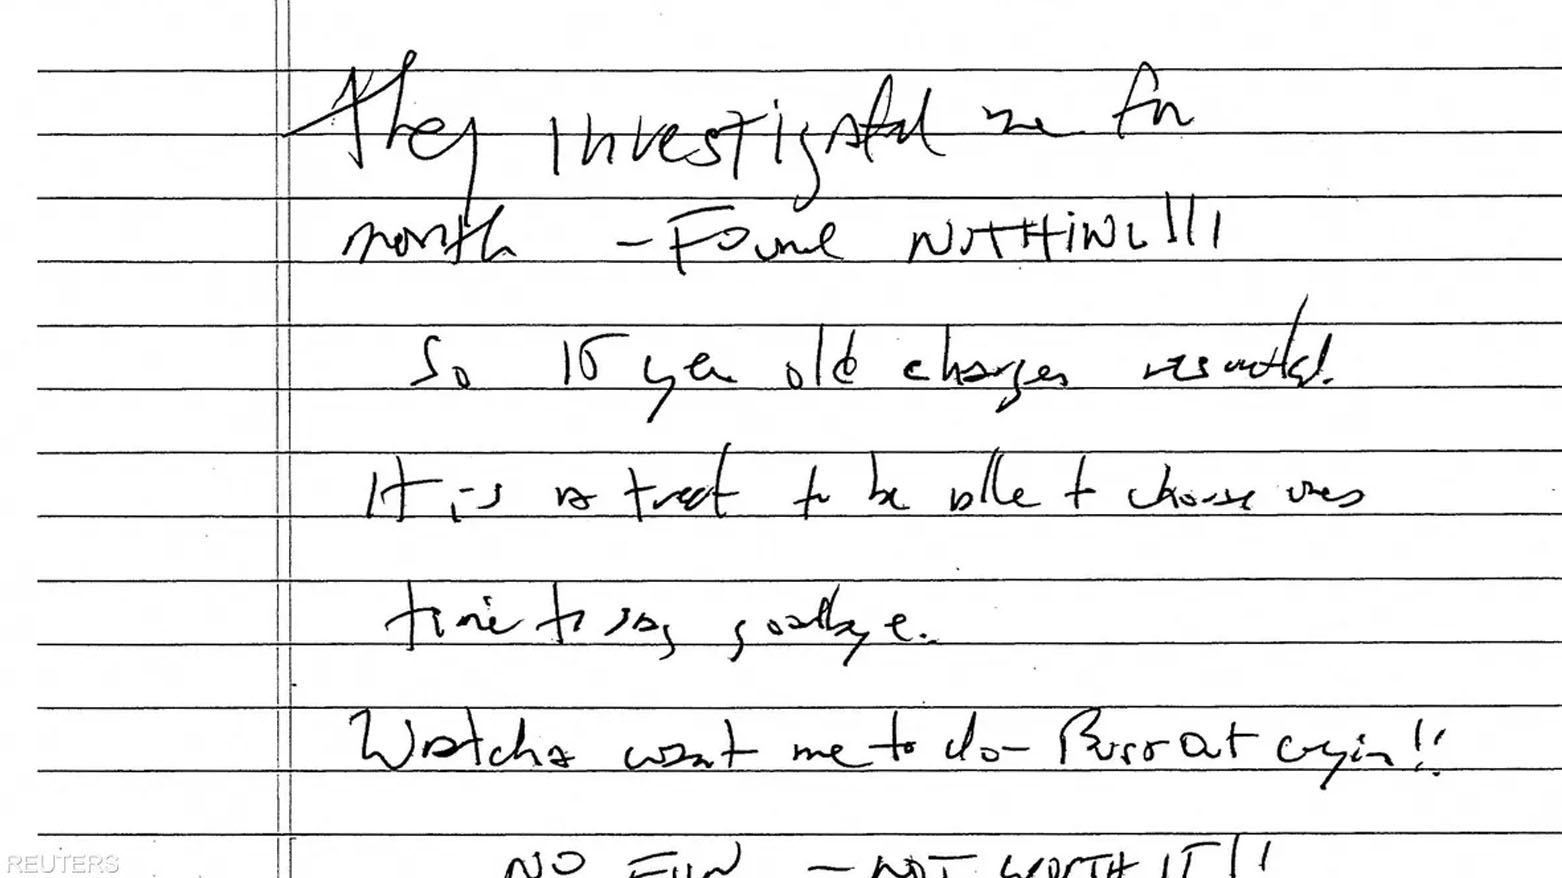 They investigated me for
month – Found NOTHING!!!
So 15 year old charges resulted.
It is a treat to be able to choose ones
time to say goodbye.
Watcha want me to do – Burst out cryin!!
NO FUN – NOT WORTH IT!!
REUTERS